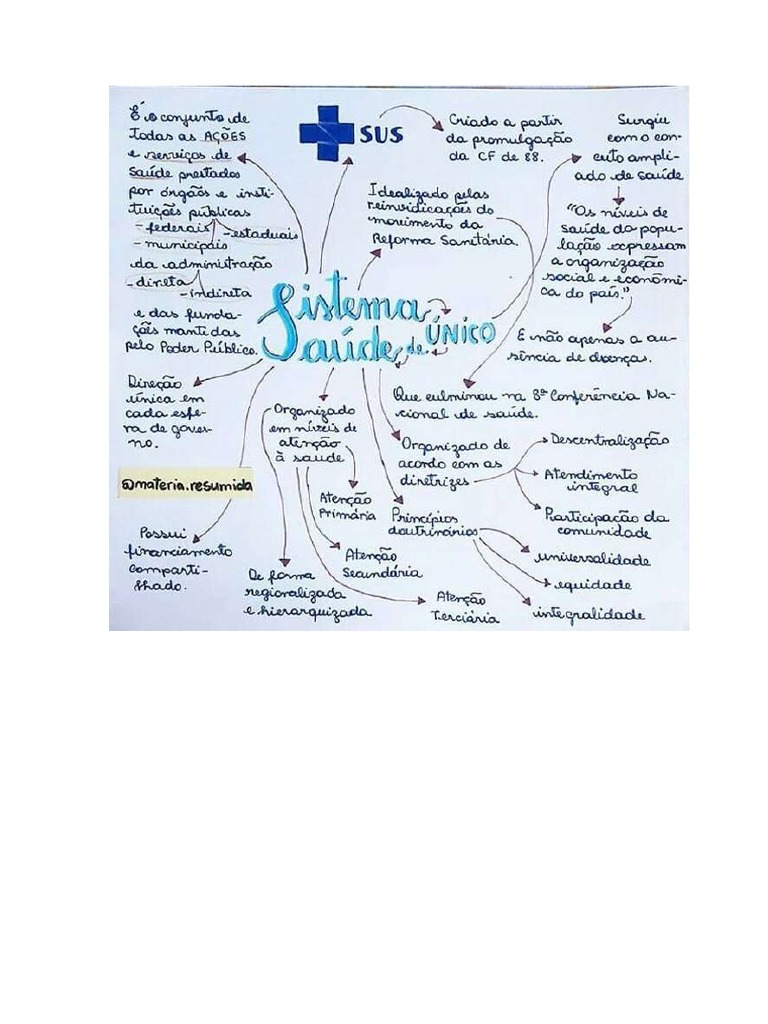 É o conjunto de
todas as AÇÕES
e serviços de
saúde prestados
por órgãos e insti-
tuições públicas
- federais
- estaduais
- municipais
da administração
- direta
- indireta
e das funda-
ções mantidas
pelo Poder Público.
SUS
Criado a partir
da promulgação
da CF de 88.
Surgiu
com o con
ceito ampli-
ado de saúde
"Os níveis de
saúde da popu-
lação expressam
a organização
social e econômi-
ca do país."
E não apenas a au-
sência de doenças.
Idealizado pelas
reinvidicações do
movimento da
Reforma Sanitária.
Sistema
ÚNICO
Saúde de
Que culminou na 8ª Conferência Na-
cional de saúde.
Direção
única em
cada esfe-
ra de gover-
no.
@materia.resumida
Possui
financiamento
comparti-
lhado.
Organizado
em níveis de
atenção
à saude
Atenção
Primária
Atenção
Secundária
Atenção
Terciária
De forma
regionalizada
e hierarquizada
Organizado de
acordo com as
diretrizes
Descentralização
Atendimento
integral
Participação da
comunidade
Princípios
doutrinários
universalidade
equidade
integralidade